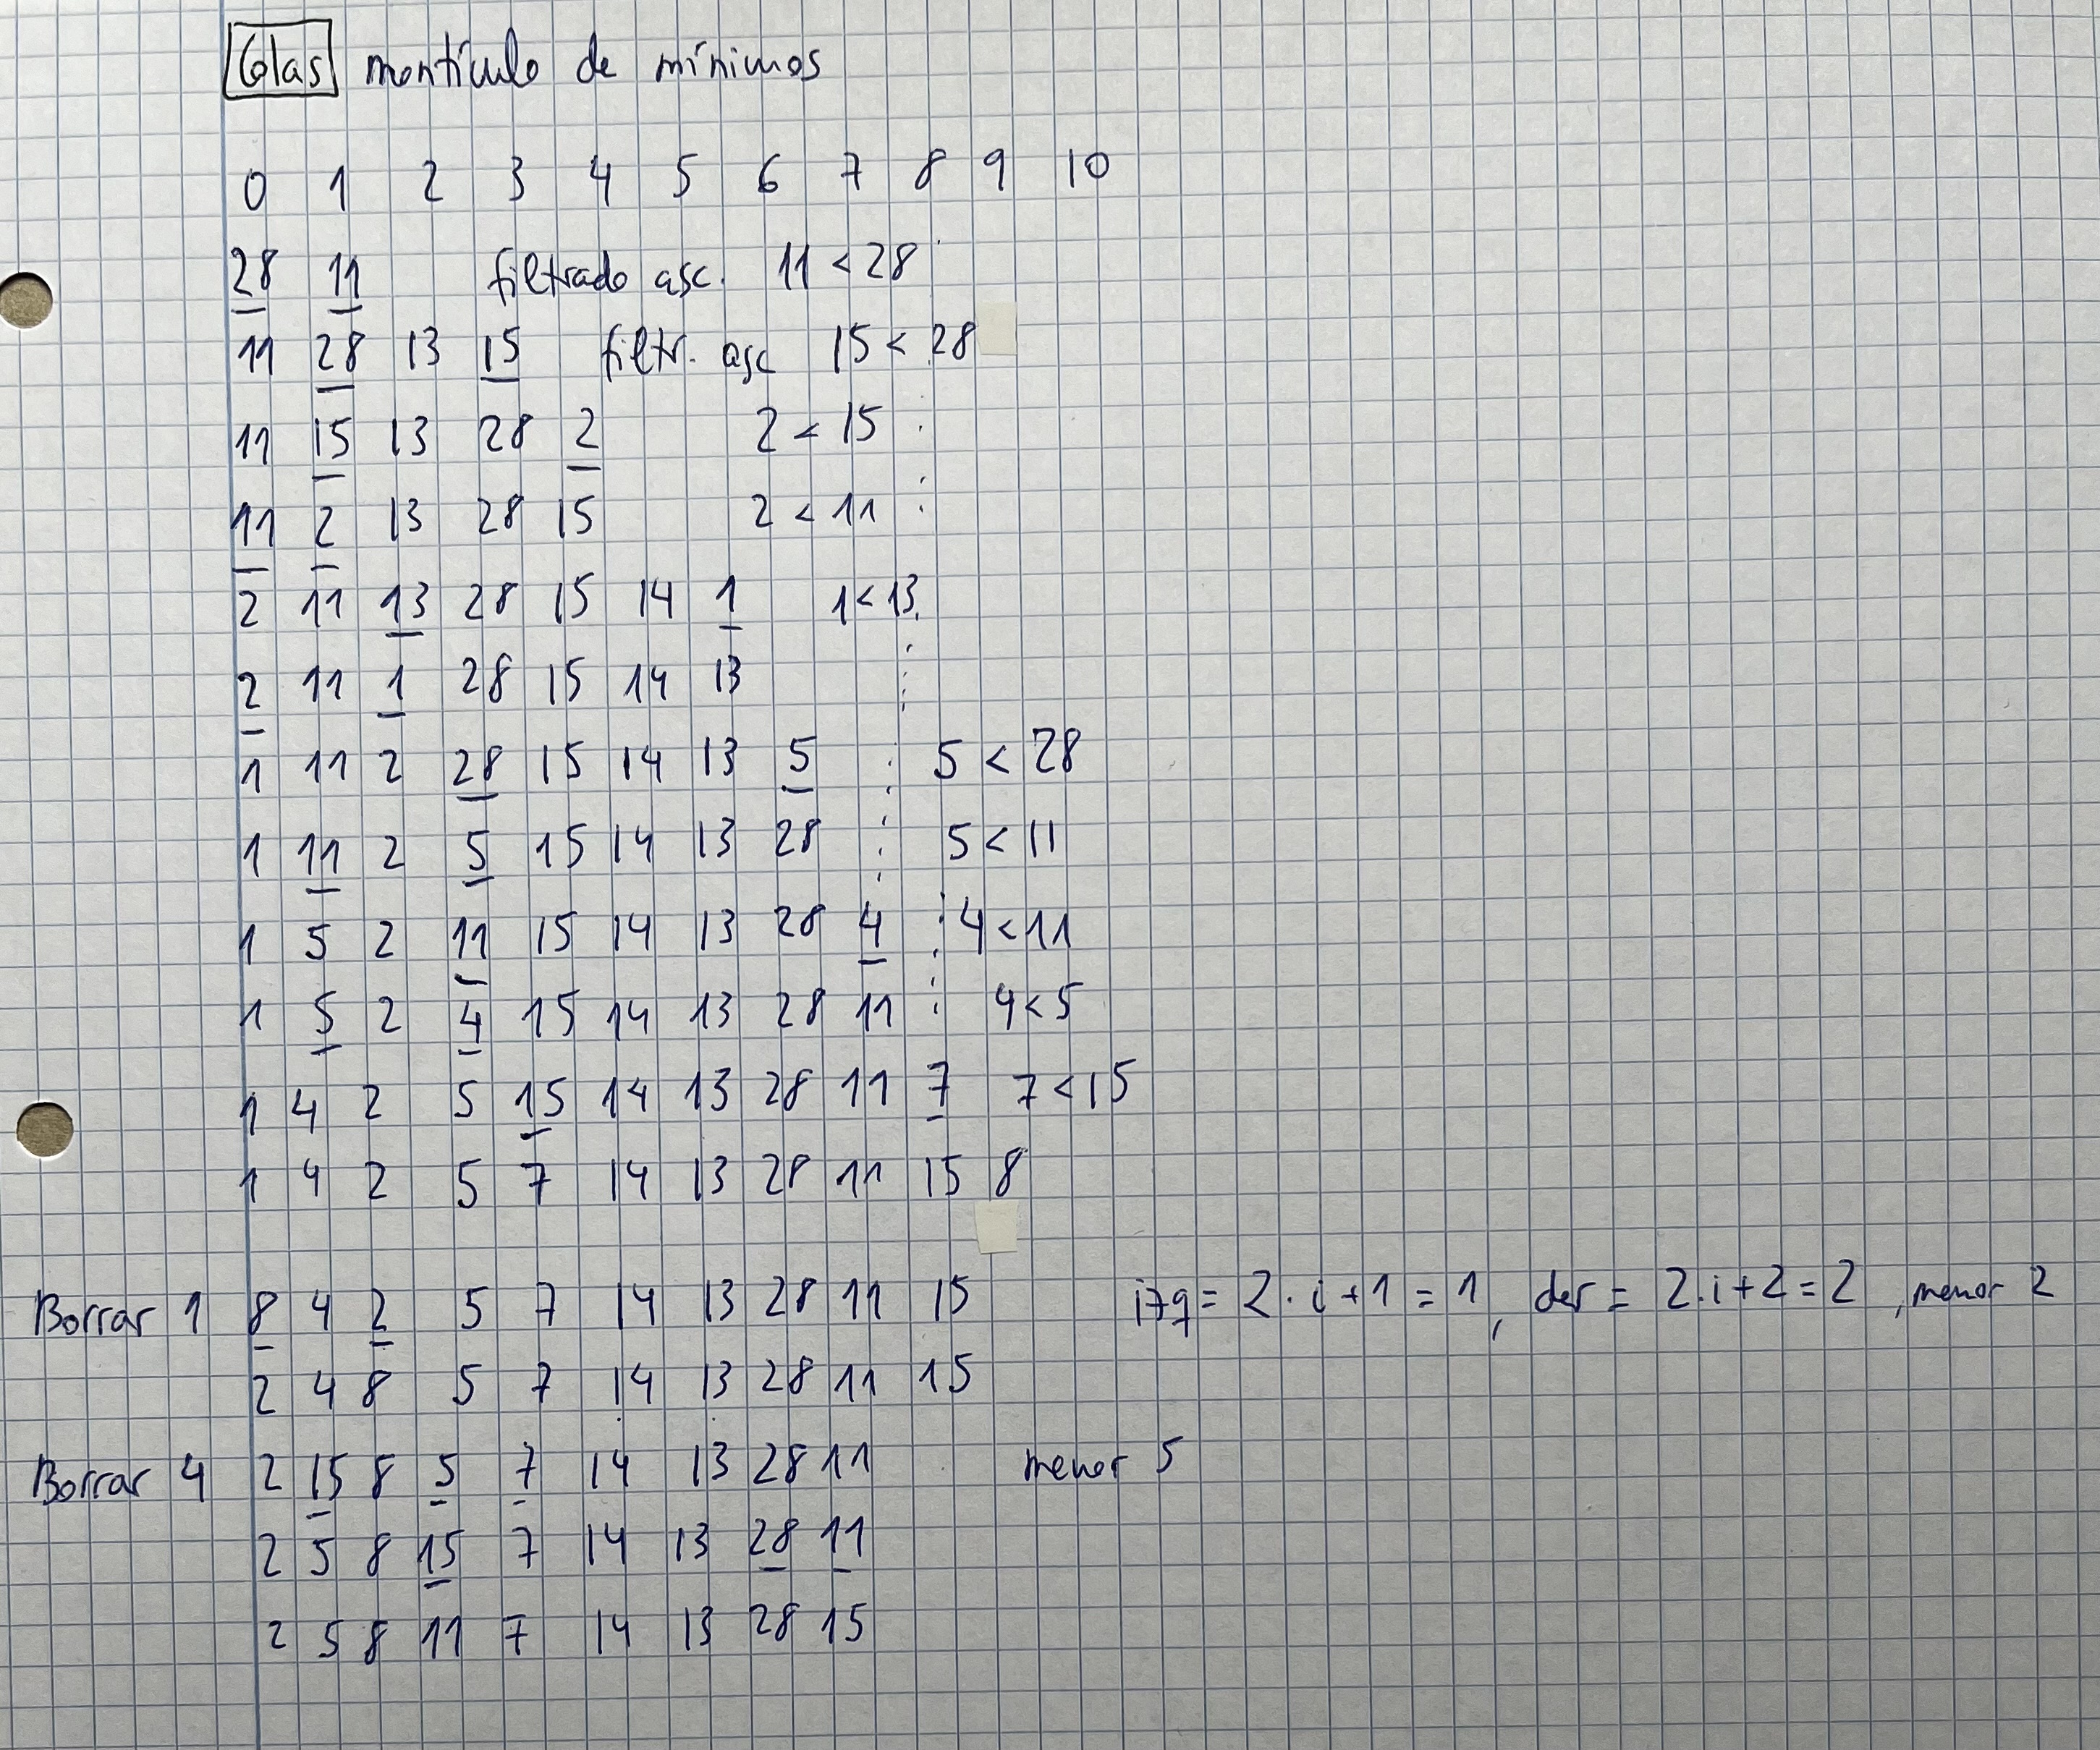 Colas montículo de mínimos
0 1 2 3 4 5 6 7 8 9 10
28 11 filtrado asc. 11 < 28
11 28 13 15 filtr. asc 15 < 28
11 15 13 28 2 2 < 15
11 2 13 28 15 2 < 11
2 11 13 28 15 14 1 1 < 13
2 11 1 28 15 14 13
1 11 2 28 15 14 13 5 5 < 28
1 11 2 5 15 14 13 28 5 < 11
1 5 2 11 15 14 13 28 4 4 < 11
1 5 2 4 15 14 13 28 11 4 < 5
1 4 2 5 15 14 13 28 11 7 7 < 15
1 4 2 5 7 14 13 28 11 15 8
Borrar 1 8 4 2 5 7 14 13 28 11 15 izq = 2 · i + 1 = 1, der = 2 · i + 2 = 2, menor 2
2 4 8 5 7 14 13 28 11 15
Borrar 4 2 15 8 5 7 14 13 28 11 menor 5
2 5 8 15 7 14 13 28 11
2 5 8 11 7 14 13 28 15